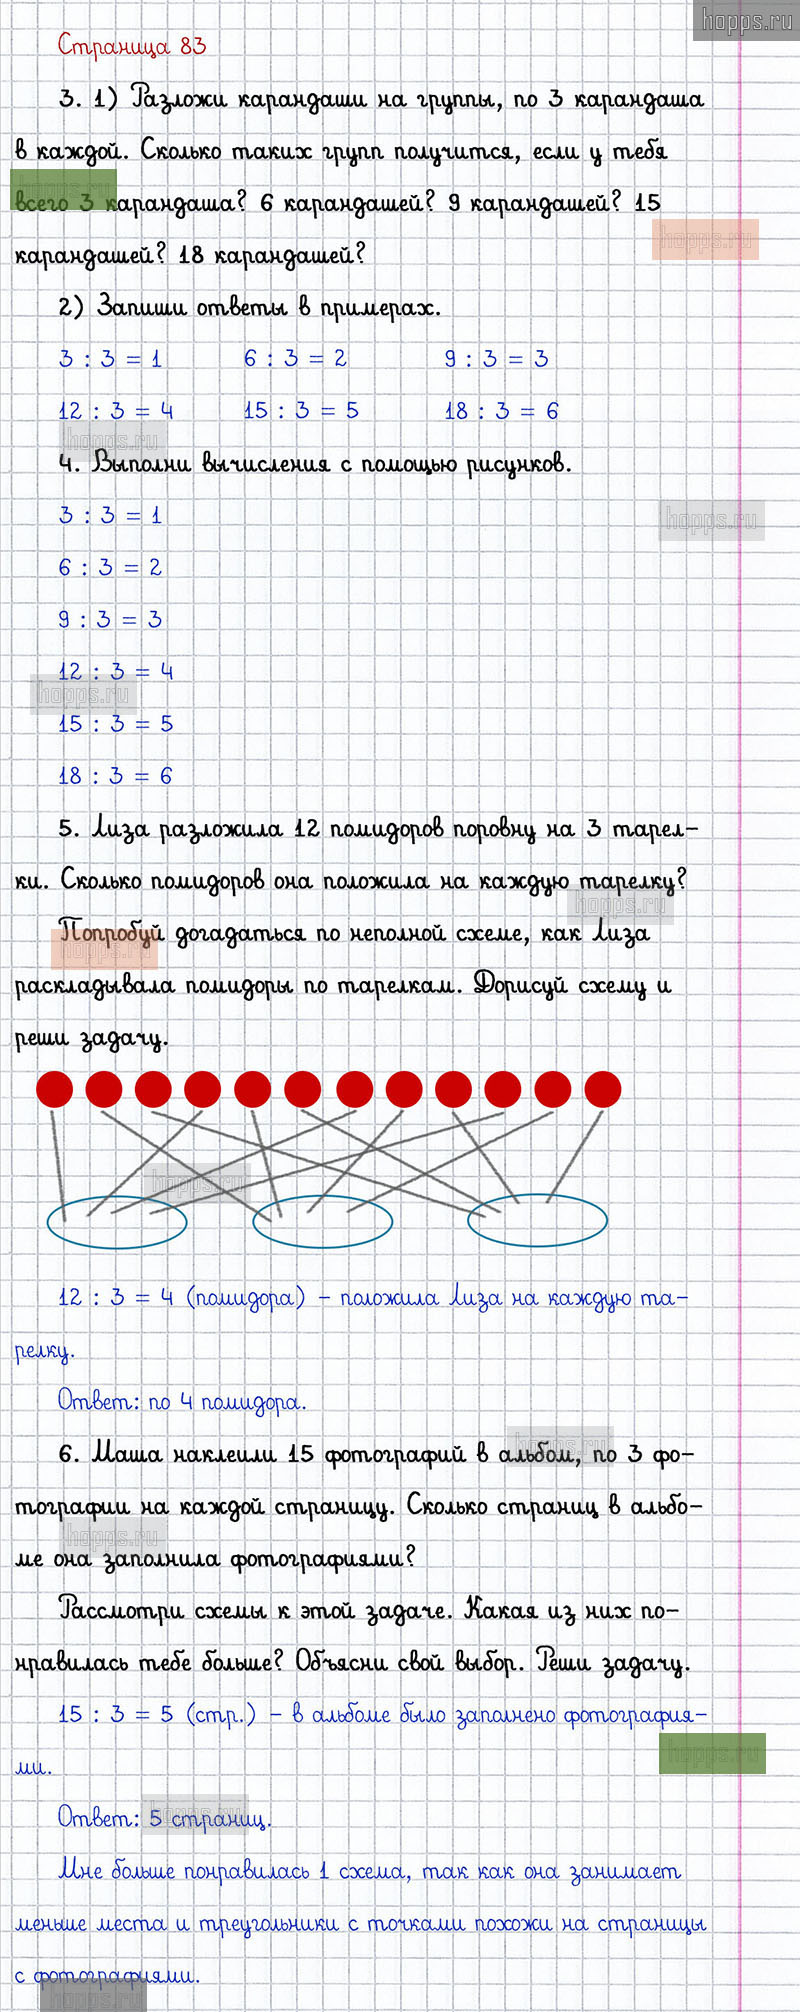 hopps.ru
Страница 83
3. 1) Разложи карандаши на группы, по 3 карандаша
в каждой. Сколько таких групп получится, если у тебя
hopps.ru
всего 3 карандаша? 6 карандашей? 9 карандашей? 15
hopps.ru
карандашей? 18 карандашей?
2) Запиши ответы в примерах.
3 : 3 = 1 6 : 3 = 2 9 : 3 = 3
12 : 3 = 4 15 : 3 = 5 18 : 3 = 6
hopps.ru
4. Выполни вычисления с помощью рисунков.
3 : 3 = 1
hopps.ru
6 : 3 = 2
9 : 3 = 3
12 : 3 = 4
hopps.ru
15 : 3 = 5
18 : 3 = 6
5. Лиза разложила 12 помидоров поровну на 3 тарел-
ки. Сколько помидоров она положила на каждую тарелку?
hopps.ru
Попробуй догадаться по неполной схеме, как Лиза
hopps.ru
раскладывала помидоры по тарелкам. Дорисуй схему и
реши задачу.
hopps.ru
12 : 3 = 4 (помидора) – положила Лиза на каждую та-
релку.
Ответ: по 4 помидора.
hopps.ru
6. Маша наклеили 15 фотографий в альбом, по 3 фо-
тографии на каждой страницу. Сколько страниц в альбо-
hopps.ru
ме она заполнила фотографиями?
Рассмотри схемы к этой задаче. Какая из них по-
нравилась тебе больше? Объясни свой выбор. Реши задачу.
15 : 3 = 5 (стр.) – в альбоме было заполнено фотография-
hopps.ru
ми.
hopps.ru
Ответ: 5 страниц.
Мне больше понравилась 1 схема, так как она занимает
меньше места и треугольники с точками похожи на страницы
с фотографиями.
hopps.ru